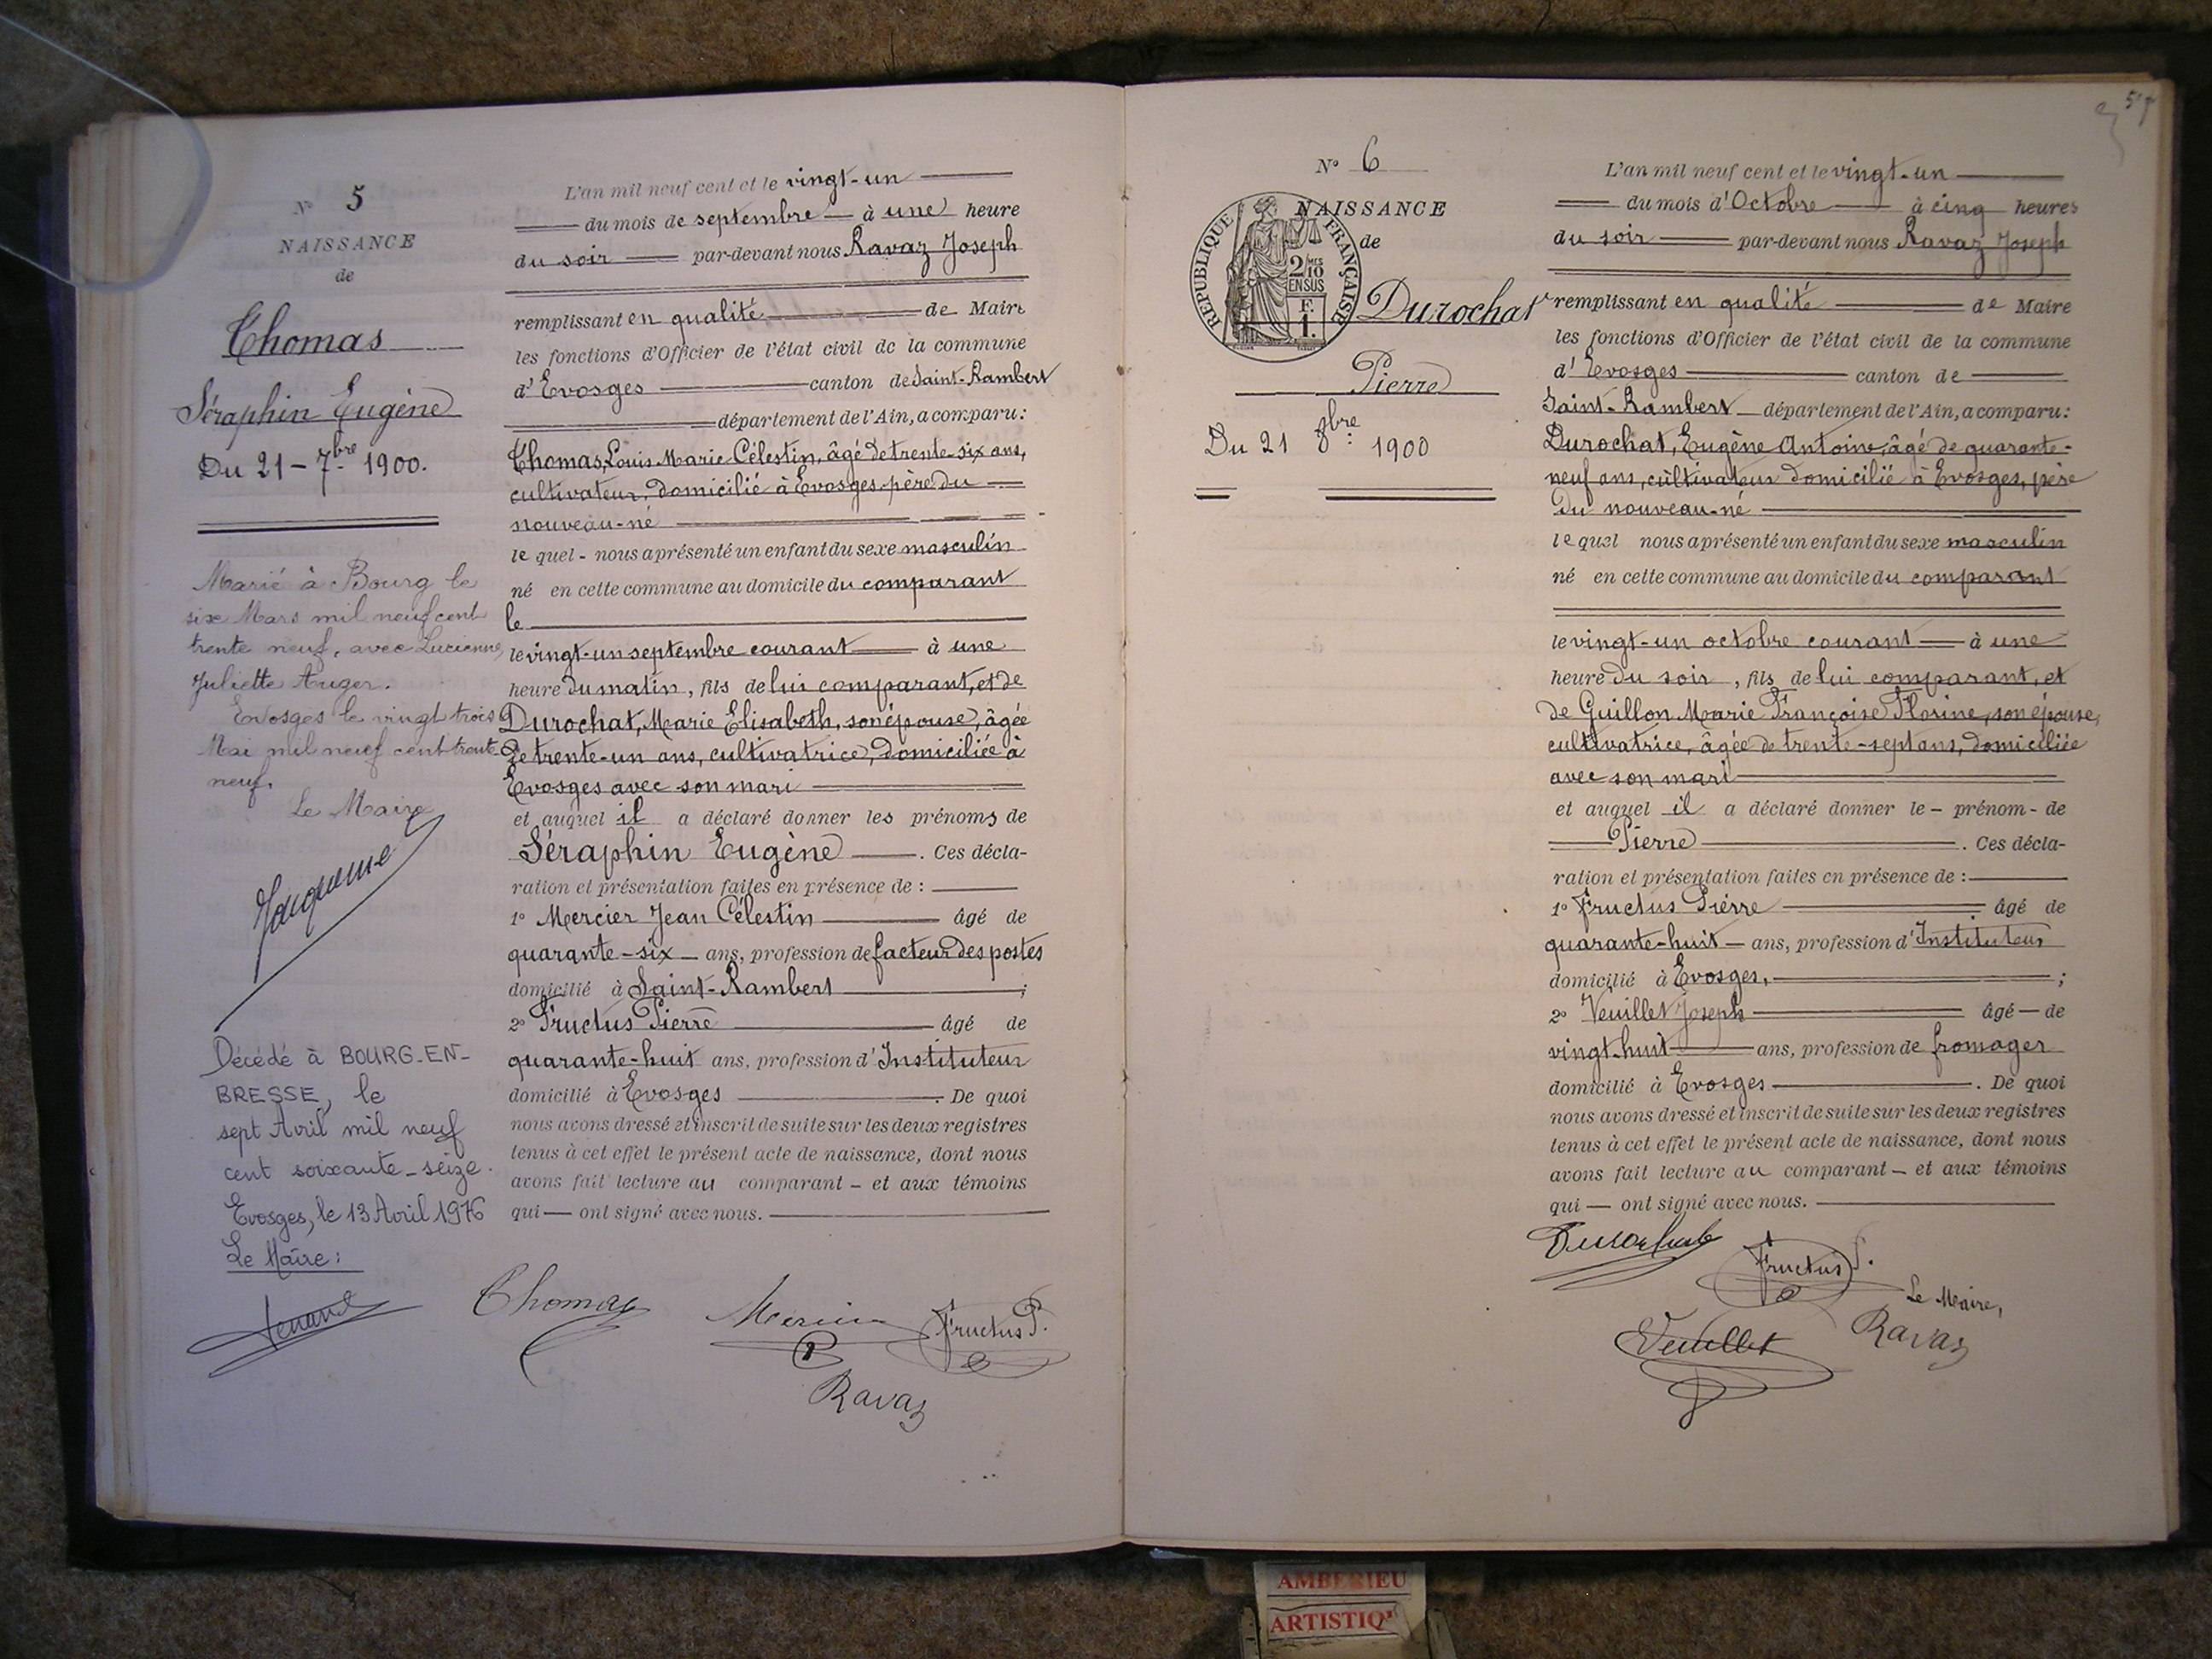 N° 5
NAISSANCE
de
Thomas
Séraphin Eugène
Du 21 - 7bre 1900.
Marié à Bourg le
six Mars mil neuf cent
trente neuf, avec Lucienne
Juliette Auger.
Evosges le vingt trois
Mai mil neuf cent trente
neuf.
Le Maire
Décédé à BOURG-EN-
BRESSE, le
sept Avril mil neuf
cent soixante-seize.
Evosges, le 13 Avril 1976
Le Maire :
L'an mil neuf cent et le vingt-un
du mois de septembre à une heure
du soir par-devant nous Ravaz Joseph
remplissant en qualité de Maire
les fonctions d'Officier de l'état civil de la commune
d'Evosges canton de Saint-Rambert
département de l'Ain, a comparu :
Thomas, Louis Marie Célestin, âgé de trente-six ans,
cultivateur, domicilié à Evosges, père du
nouveau-né
le quel - nous a présenté un enfant du sexe masculin
né en cette commune au domicile du comparant
le
le vingt-un septembre courant à une
heure du matin, fils de lui comparant, et de
Durochat, Marie Elisabeth, son épouse, âgée
de trente-un ans, cultivatrice, domiciliée à
Evosges avec son mari
et auquel il a déclaré donner les prénoms de
Séraphin Eugène . Ces décla-
ration et présentation faites en présence de :
1° Mercier Jean Célestin âgé de
quarante-six - ans, profession de facteur des postes
domicilié à Saint-Rambert ;
2° Fructus Pierre âgé de
quarante-huit ans, profession d'Instituteur
domicilié à Evosges . De quoi
nous avons dressé et inscrit de suite sur les deux registres
tenus à cet effet le présent acte de naissance, dont nous
avons fait lecture au comparant - et aux témoins
qui - ont signé avec nous.
Thomas
Mercier
Fructus P.
Ravaz
57
N° 6
NAISSANCE
de
REPUBLIQUE FRANÇAISE
2/10 MES
EN SUS
F.
1.
Durochat
Pierre
Du 21 8bre 1900
L'an mil neuf cent et le vingt-un
du mois d'Octobre à cinq heures
du soir par-devant nous Ravaz Joseph
remplissant en qualité de Maire
les fonctions d'Officier de l'état civil de la commune
d'Evosges canton de
Saint-Rambert département de l'Ain, a comparu :
Durochat, Eugène Antoine, âgé de quarante-
neuf ans, cultivateur domicilié à Evosges, père
du nouveau-né
le quel nous a présenté un enfant du sexe masculin
né en cette commune au domicile du comparant
le vingt-un octobre courant à une
heure du soir, fils de lui comparant, et
de Guillon Marie Françoise Florine, son épouse,
cultivatrice, âgée de trente-sept ans, domiciliée
avec son mari
et auquel il a déclaré donner le - prénom - de
Pierre . Ces décla-
ration et présentation faites en présence de :
1° Fructus Pierre âgé de
quarante-huit - ans, profession d'Instituteur
domicilié à Evosges, ;
2° Veuillet Joseph âgé - de
vingt-huit ans, profession de fromager
domicilié à Evosges . De quoi
nous avons dressé et inscrit de suite sur les deux registres
tenus à cet effet le présent acte de naissance, dont nous
avons fait lecture au comparant - et aux témoins
qui - ont signé avec nous.
Durochat
Fructus P.
Le Maire,
Veuillet
Ravaz
AMBERIEU
ARTISTIQ'